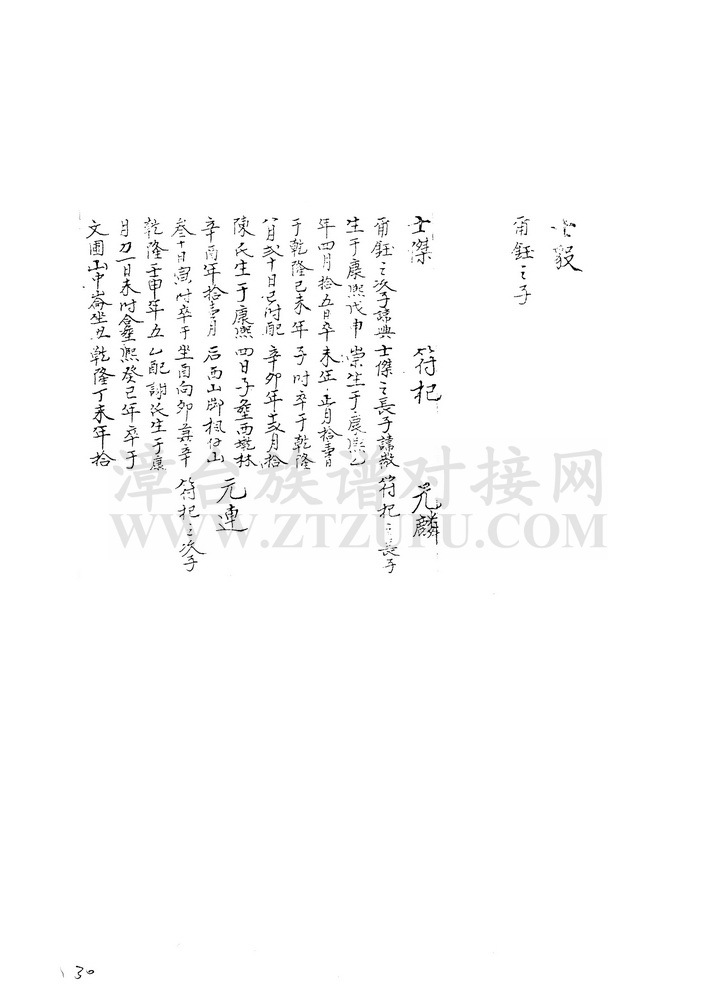 士毅
甯鈺之子
士傑
甯鈺之次子諱典
生于康熙戊申
年四月拾五日卒
于乾隆己未年
八月弍十日巳时配
陳氏生于康熙
辛酉年拾壹月
叁十日寅时卒于
乾隆壬申年五
月初一日未时仝塟
文圃山中崙坐丑
符杞
士傑之長子諱敬
崇生于康熙乙
未年正月拾壹日
子时卒于乾隆
辛卯年十弍月拾
四日子塟西墘林
后西山脚楓仔山
坐酉向卯兼辛
乙配謝氏生于康
熙癸巳年卒于
乾隆丁未年拾
元麟
符杞之長子
元連
符杞之次子
漳台族谱对接网
WWW.ZTZUPU.COM
30